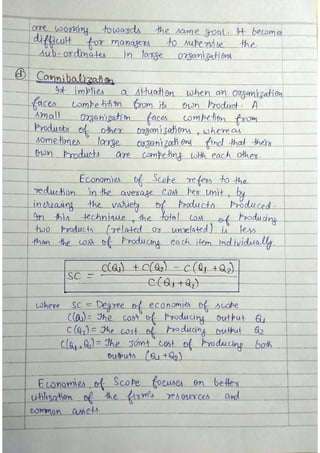 are working towards the same goal. It become
difficult for managers to supervise the
sub-ordinates in large organisations
d) Cannibalization
It implies a situation when an organization
faces competition from its own Product. A
small organisation faces competion from
Products of other organisations, whereas
sometimes large organizations find that their
own Products are competing with each other.
Economies of Scope refers to the
reduction in the average cost per unit, by
increasing the variety of Products Produced.
In this technique, the total cost of Producing
two Products (related or unrelated) is less
than the cost of Producing each item individually.
SC = C(Q1) + C(Q2) - C(Q1 + Q2)
C(Q1 + Q2)
where SC = Degree of economies of scope
C(Q1) = The cost of Producing output Q1
C(Q2) = The cost of Producing output Q2
C(Q1, Q2) = The Joint cost of Producing both
outputs (Q1 + Q2)
Economies of Scope focuses on better
utilisation of the firm's resources and
common assets.